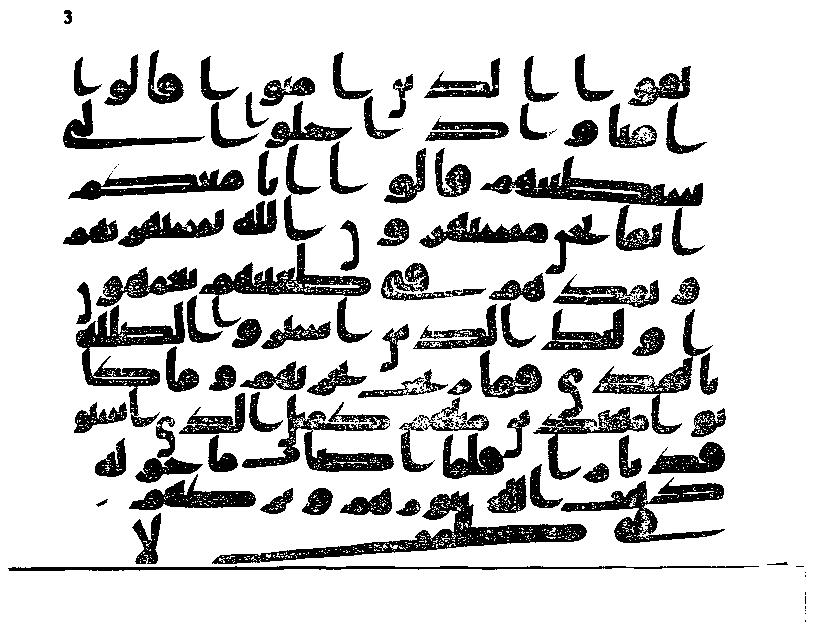 3
لقوا الذين امنوا قالوا
امنا و اذا خلوا الى
شيطينهم قالوا انا معكم
انما نحن مستهزون الله يستهزى بهم
و يمدهم فى طغينهم يعمهون
اولئك الذين اشتروا الضللة
بالهدى فما ربحت تجرتهم و ما كا
نوا مهتدين مثلهم كمثل الذى استو
قد نارا فلما اضات ما حوله
ذهب الله بنورهم و تركهم
فى ظلمت لا